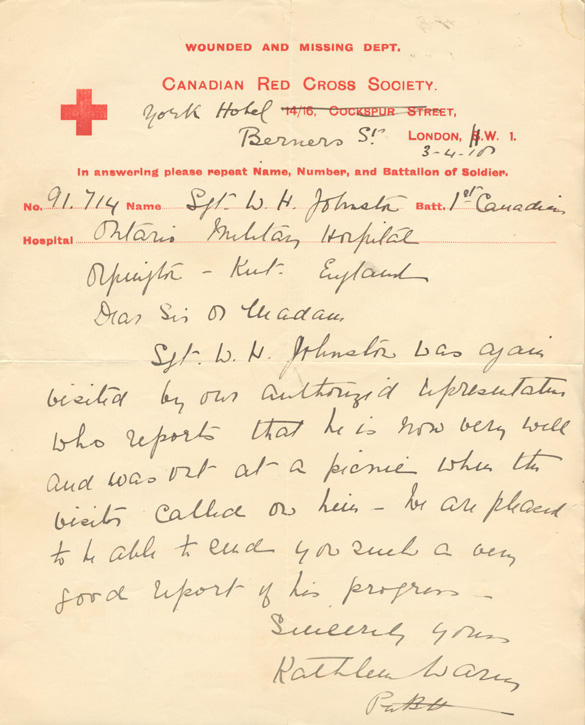 WOUNDED AND MISSING DEPT.
CANADIAN RED CROSS SOCIETY.
York Hotel 14/16, COCKSPUR STREET,
Berners St. LONDON, W. 1.
3-4-18
In answering please repeat Name, Number, and Battalion of Soldier.
No. 91.714 Name Sgt. W. H. Johnston Batt. 1st Canadian
Hospital Ontario Military Hospital
Orpington - Kent. England
Dear Sir or Madam
Sgt. W. H. Johnston was again
visited by our authorized representative
who reports that he is now very well
and was out at a picnic when the
visitor called on him - We are pleased
to be able to send you such a very
good report of his progress -
Sincerely yours
Kathleen